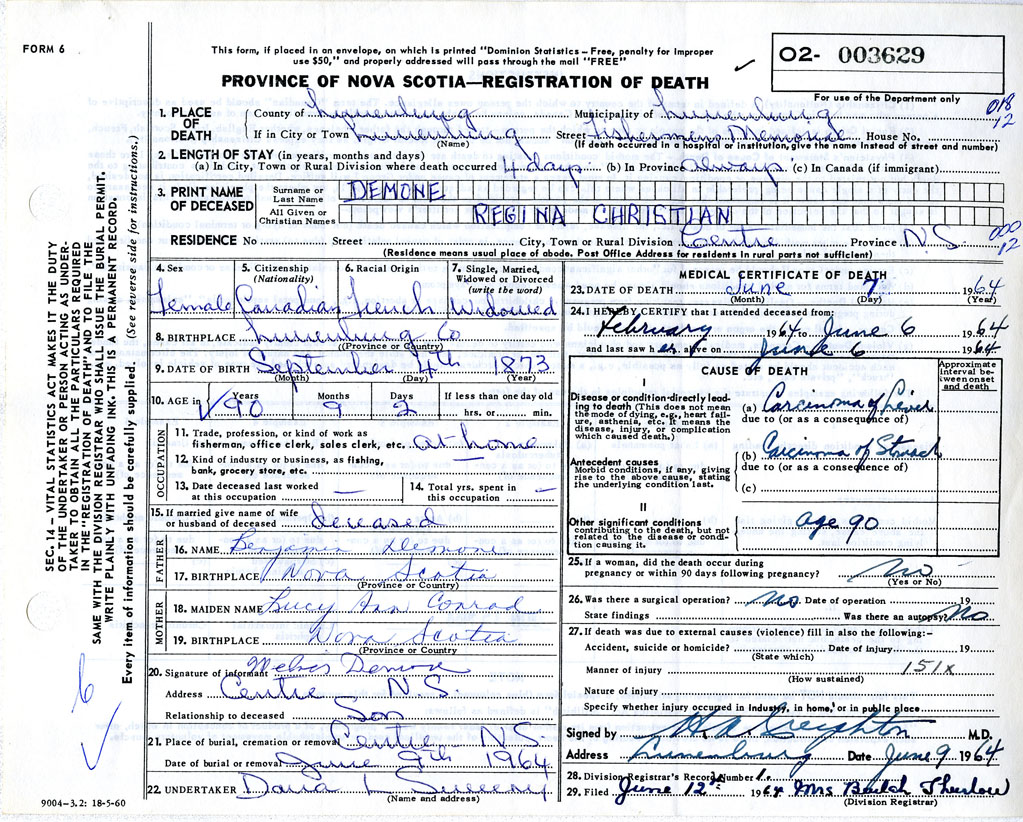 FORM 6
This form, if placed in an envelope, on which is printed "Dominion Statistics – Free, penalty for improper
use $50," and properly addressed will pass through the mail "FREE"
PROVINCE OF NOVA SCOTIA—REGISTRATION OF DEATH
O2- 003629
For use of the Department only
018
12
1. PLACE OF DEATH
County of Lunenburg Municipality of Lunenburg
If in City or Town Lunenburg Street Fishermens Memorial House No.
(Name) (If death occurred in a hospital or institution, give the name instead of street and number)
2. LENGTH OF STAY (in years, months and days)
(a) In City, Town or Rural Division where death occurred 4 days (b) In Province always (c) In Canada (if immigrant)
3. PRINT NAME OF DECEASED
Surname or Last Name DEMONE
All Given or Christian Names REGINA CHRISTIAN
000
12
RESIDENCE No Street City, Town or Rural Division Centre Province N.S
(Residence means usual place of abode. Post Office Address for residents in rural parts not sufficient)
4. Sex
Female
5. Citizenship (Nationality)
Canadian
6. Racial Origin
French
7. Single, Married, Widowed or Divorced (write the word)
Widowed
8. BIRTHPLACE Lunenburg Co
(Province or Country)
9. DATE OF BIRTH September 4th 1873
(Month) (Day) (Year)
10. AGE in Years Months Days If less than one day old
90 9 2 hrs. or min.
OCCUPATION
11. Trade, profession, or kind of work as
fisherman, office clerk, sales clerk, etc. at home
12. Kind of industry or business, as fishing,
bank, grocery store, etc.
13. Date deceased last worked
at this occupation —
14. Total yrs. spent in
this occupation —
15. If married give name of wife
or husband of deceased deceased
FATHER
16. NAME Benjamin Demone
17. BIRTHPLACE Nova Scotia
(Province or Country)
MOTHER
18. MAIDEN NAME Lucy Ann Conrad
19. BIRTHPLACE Nova Scotia
(Province or Country)
20. Signature of informant Demone
Address Centre – N.S.
Relationship to deceased Son
21. Place of burial, cremation or removal Centre N S
Date of burial or removal June 9th 1964
22. UNDERTAKER L Sweeny
(Name and address)
MEDICAL CERTIFICATE OF DEATH
23. DATE OF DEATH June 7 1964
(Month) (Day) (Year)
24. I HEREBY CERTIFY that I attended deceased from:
February 1964 to June 6 1964
and last saw her alive on June 6 1964
CAUSE OF DEATH
Approximate interval between onset and death
I
Disease or condition directly leading
to death (This does not mean
the mode of dying, e.g., heart failure,
asthenia, etc. It means the
disease, injury, or complication
which caused death.)
(a) Carcinoma of Liver
due to (or as a consequence of)
Antecedent causes
Morbid conditions, if any, giving
rise to the above cause, stating
the underlying condition last.
(b) Carcinoma of Stomach
due to (or as a consequence of)
(c)
II
Other significant conditions
contributing to the death, but not
related to the disease or condition
causing it.
age 90
25. If a woman, did the death occur during
pregnancy or within 90 days following pregnancy? no
(Yes or No)
26. Was there a surgical operation? no. Date of operation 19
State findings Was there an autopsy? No
27. If death was due to external causes (violence) fill in also the following:–
Accident, suicide or homicide? Date of injury 19
(State which)
Manner of injury 151x
(How sustained)
Nature of injury
Specify whether injury occurred in Industry, in home, or in public place
Signed by H.A. Creighton M.D.
Address Lunenburg Date June 9 1964
28. Division Registrar's Record Number 1.
29. Filed June 12th 1964 Mrs
(Division Registrar)
SEC. 14 – VITAL STATISTICS ACT MAKES IT THE DUTY
OF THE UNDERTAKER OR PERSON ACTING AS UNDER-
TAKER TO OBTAIN ALL THE PARTICULARS REQUIRED
IN THE "REGISTRATION OF DEATH" AND TO FILE THE
SAME WITH THE DIVISION REGISTRAR WHO SHALL ISSUE THE BURIAL PERMIT.
WRITE PLAINLY WITH UNFADING INK. THIS IS A PERMANENT RECORD.
Every item of information should be carefully supplied. (See reverse side for instructions.)
6
9004–3.2: 18-5-60